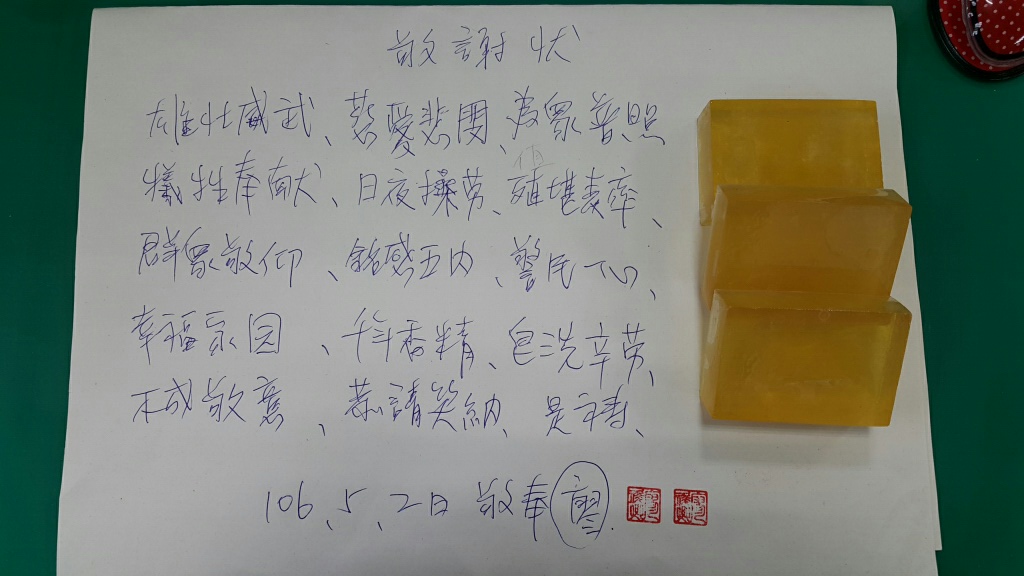 敬謝狀
雄壯威武、慈愛悲憫、為眾普照
犧牲奉献、日夜操劳、殖堪表率、
值
群眾敬仰、銘感五内、警民一心、
幸福家园、千斤香精、皂洗辛劳、
不成敬意、恭請笑納、是禱、
106、5、2日 敬奉